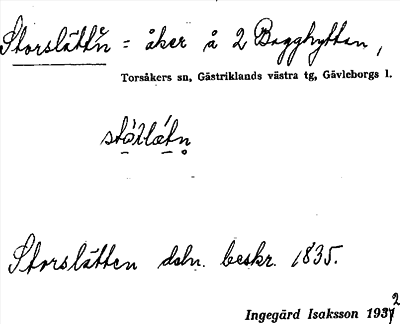 Storslätten = åker å 2 Bagghyttan,
Torsåkers sn, Gästriklands västra tg, Gävleborgs l.
stó̱rlǽtn̥
Storslätten dsbn. beskr. 1835.
Ingegärd Isaksson 1932